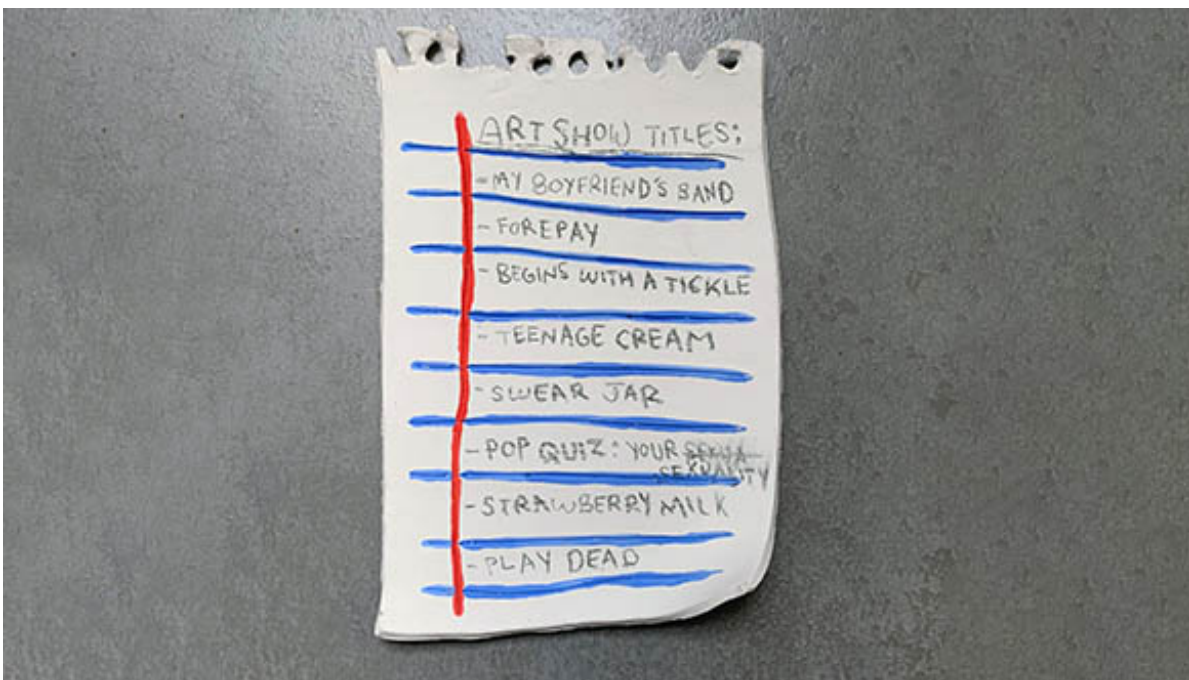 ART SHOW TITLES:
- MY BOYFRIEND'S BAND
- FOREPAY
- BEGINS WITH A TICKLE
- TEENAGE CREAM
- SWEAR JAR
- POP QUIZ: YOUR
SEXUALITY
- STRAWBERRY MILK
- PLAY DEAD